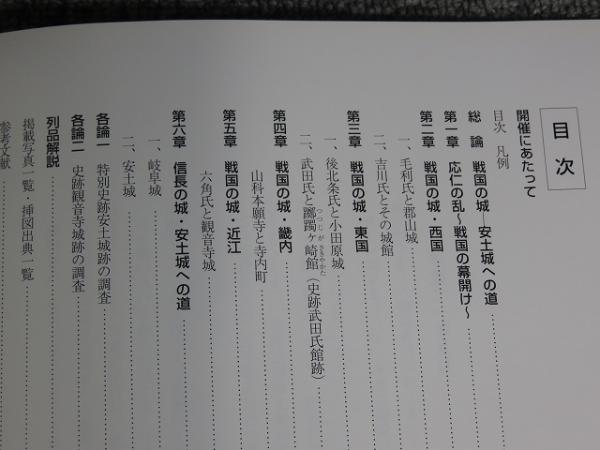 目次
開催にあたって
目次 凡例
総論 戦国の城 安土城への道
第一章 応仁の乱～戦国の幕開け～
第二章 戦国の城・西国
一、毛利氏と郡山城
二、吉川氏とその城館
第三章 戦国の城・東国
一、後北条氏と小田原城
二、武田氏と躑躅ヶ崎館（史跡武田氏館跡）
つつじがさきやかた
第四章 戦国の城・畿内
山科本願寺と寺内町
第五章 戦国の城・近江
六角氏と観音寺城
第六章 信長の城・安土城への道
一、岐阜城
二、安土城
各論一 特別史跡安土城跡の調査
各論二 史跡観音寺城跡の調査
列品解説
掲載写真一覧・挿図出典一覧
参考文献